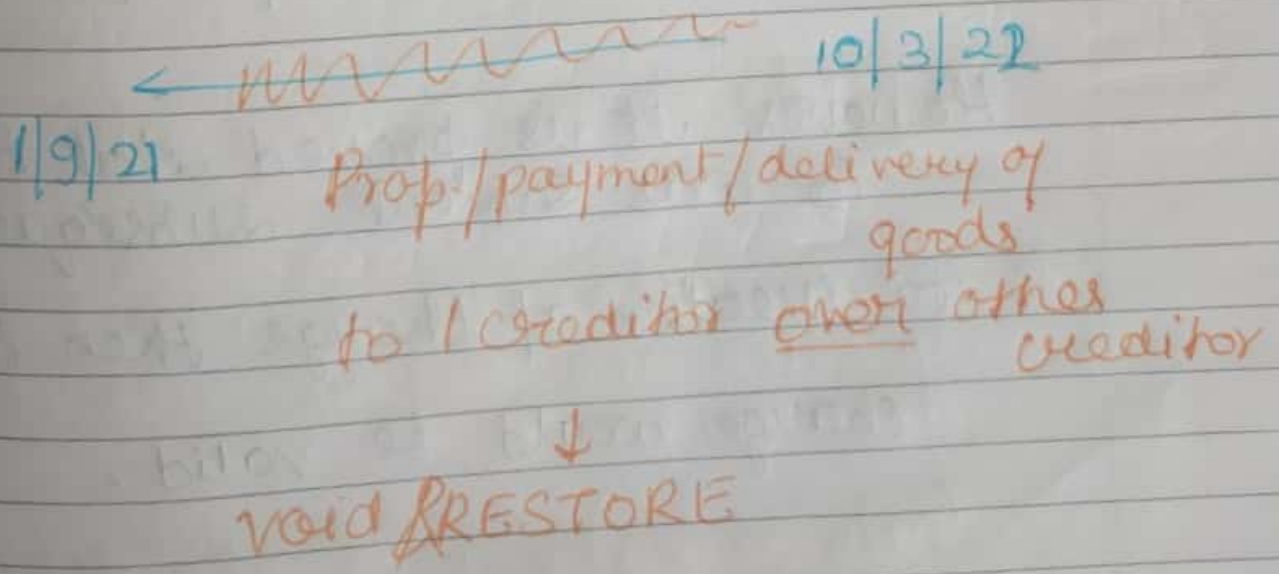 10/3/22
1/9/21
Prop./payment/delivery of
goods
to 1 creditor over other
creditor
↓
void & RESTORE